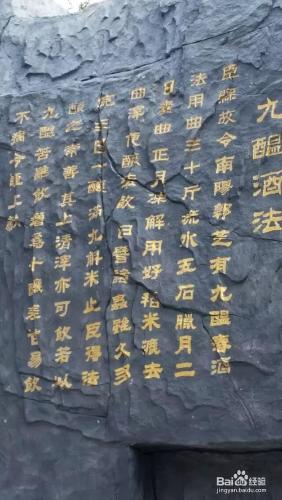 九醖酒法
臣縣故令南陽郭芝有九醖春酒
法用曲三十斤流水五石臘月二
日漬曲正月凍解用好稻米漉去
曲滓便釀法飲曰譬諸蟲雖久多
完三日一釀滿九斛米止臣得法
釀之常善其上清滓亦可飲若以
九醖苦難飲增為十釀差甘易飲
不病今謹上獻
Baidu经验
jingyan.baidu.com